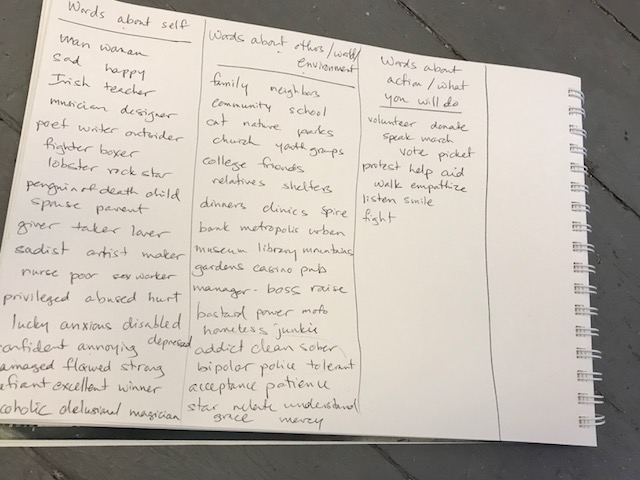 Words about self
man woman
sad happy
Irish teacher
musician designer
poet writer outsider
fighter boxer
lobster rock star
penguin of death child
spouse parent
giver taker lover
sadist artist maker
nurse poor sex worker
privileged abused hurt
lucky anxious disabled
onfident annoying depressed
amaged flawed strong
efiant excellent winner
coholic delusional magician
Words about others/world/
environment
family neighbors
community school
cat nature parks
church youth groups
college friends
relatives shelters
dinners clinics spire
bank metropolis urban
museum library mountains
gardens casino pub
manager - boss raise
bastard power mofo
homeless junkie
addict clean sober
bipolar police tolerant
acceptance patience
star relate understand
grace mercy
Words about
action/what
you will do
volunteer donate
speak march
vote picket
protest help aid
walk empathize
listen smile
fight